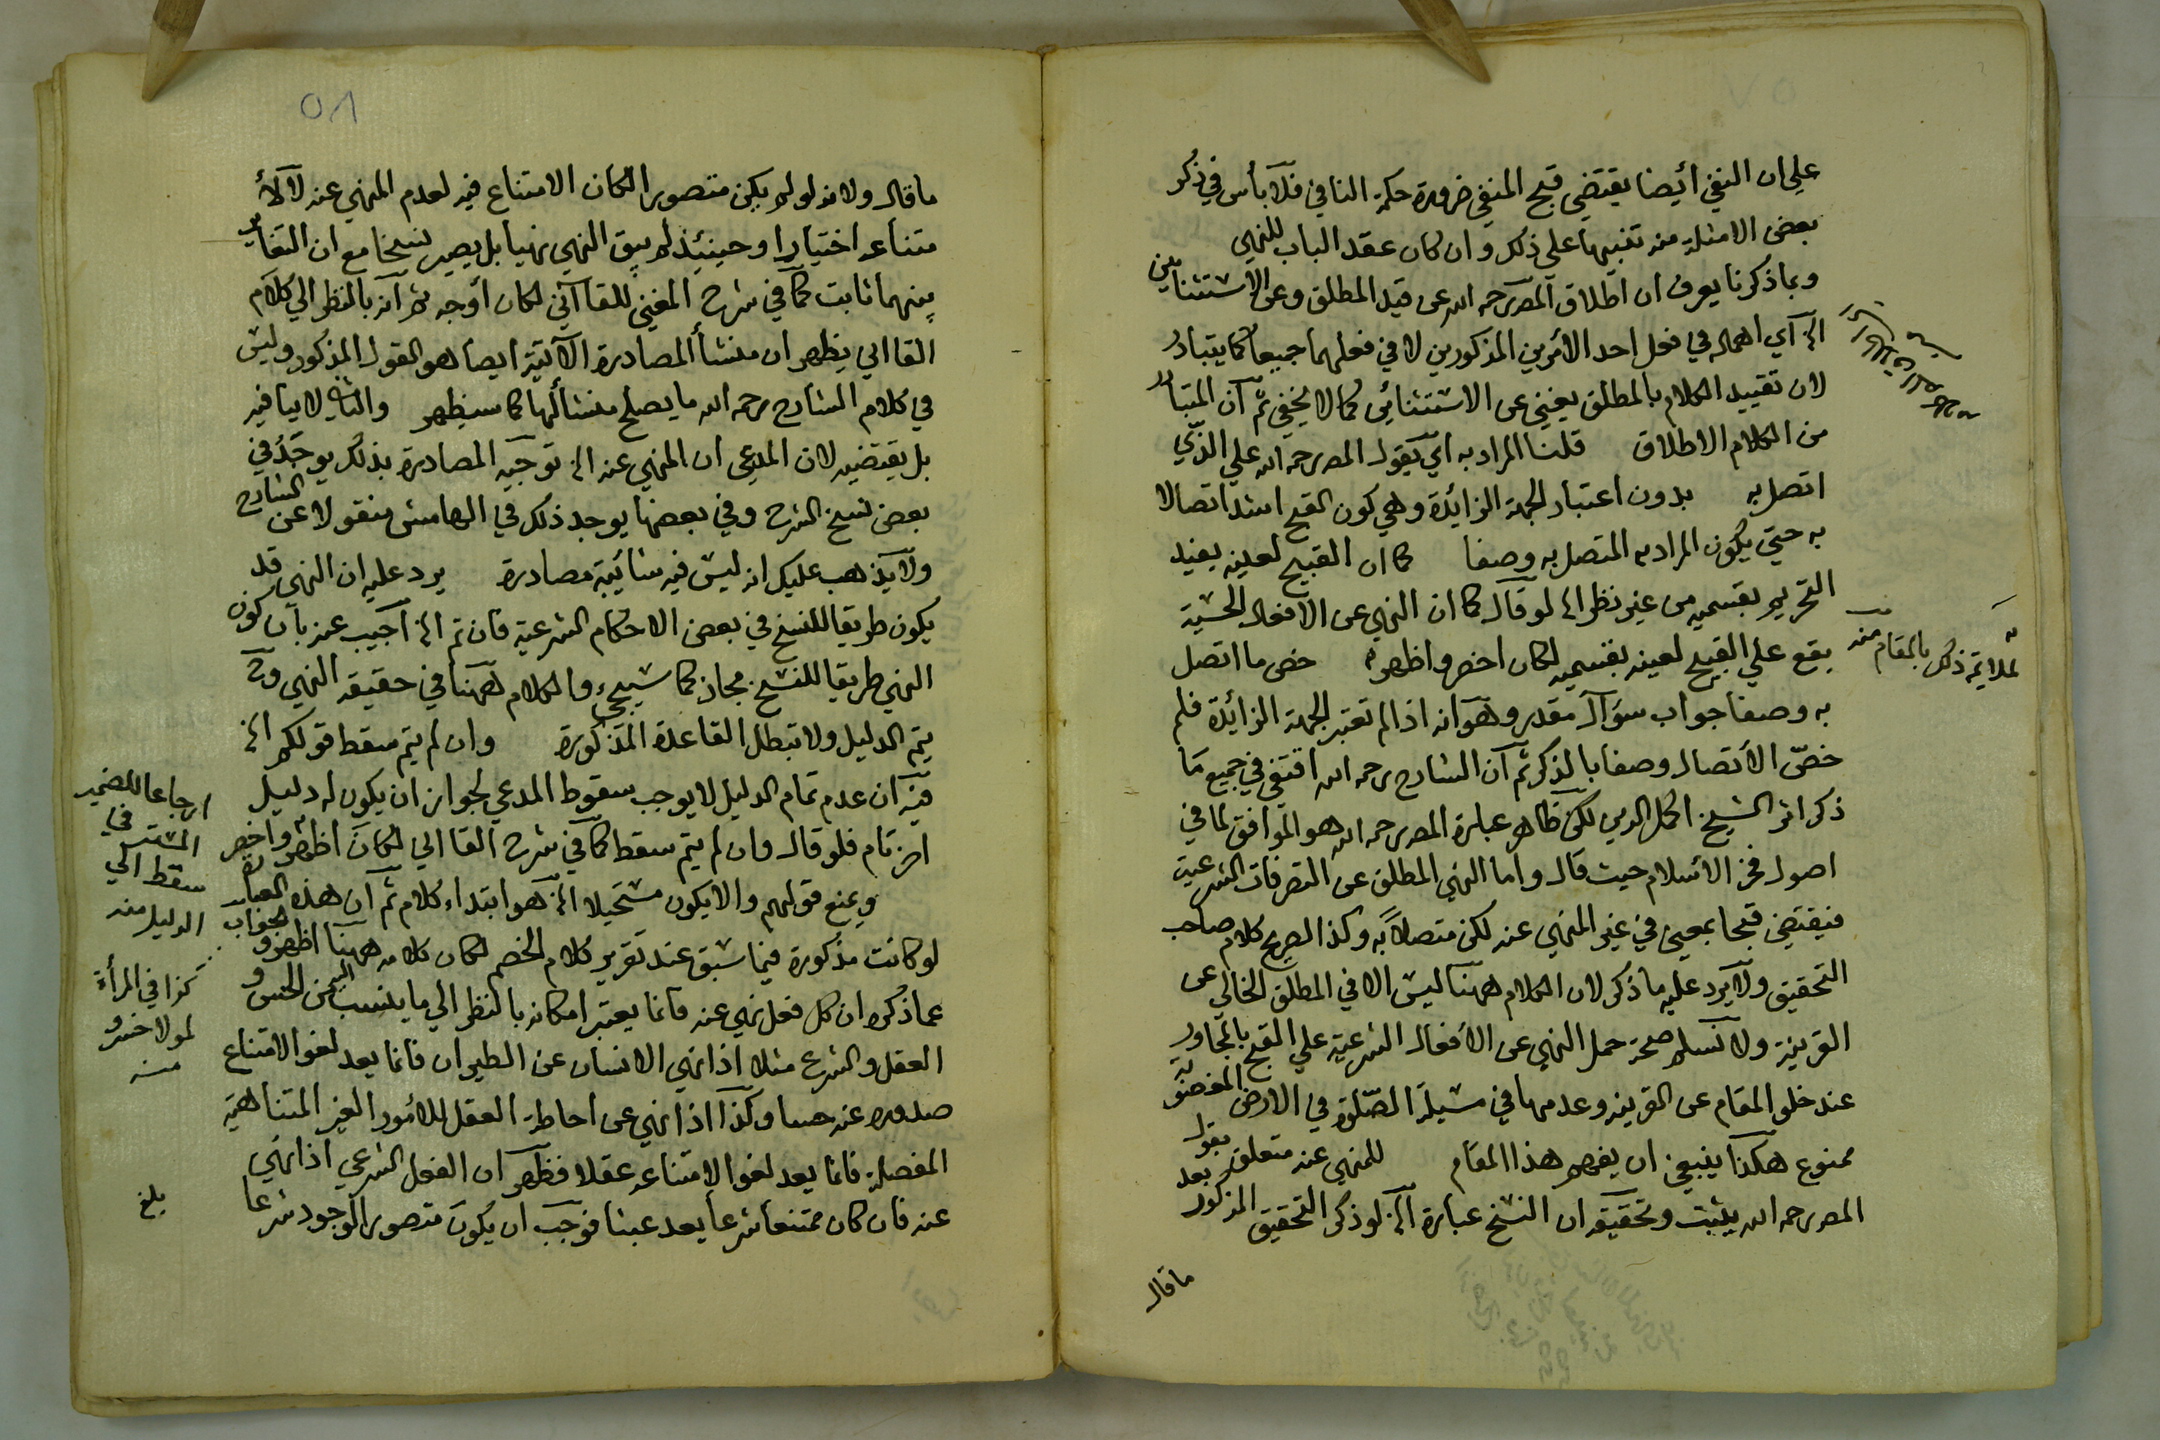 على ان النفي أيضا يقتضي قبح المنفي ضرورة حكمة النافي فلا بأس في ذكر
بعض الامثلة منه تنبيها على ذلك وان كان عقد الباب للنهي
وبما ذكرنا يعرف ان اطلاق المصرحمه الله عن قيد المطلق وعن الاستثنائين
الخ أي اهماله في فعل احد الأمرين المذكورين لا في فعلهما جميعا كما يتبادر
لان تقييد الكلام بالمطلق يغني عن الاستثنائين كما لا يخفى ثم ان المتبادر
من الكلام الاطلاق قلنا المراد به اي بقول المصرحمه الله على الذي
اتصل به بدون اعتبار الجهة الزائدة وهي كون القبح اشد اتصالا
به حتى يكون المراد به المتصل به وصفا كما ان القبيح لعينه يفيد
التحريم بقسميه من غير نظر الخ لو قال كما ان النهي عن الافعال الحسية
يقع على القبيح لعينه بقسميه لكان اخصر واظهر خص ما اتصل
به وصفا جواب سؤال مقدر وهو انه اذا لم تعتبر الجهة الزائدة فلم
خصّ الأتصال وصفا بالذكر ثم ان الشارح رحمه الله اقتفى في جميع ما
ذكر اثر الشيخ اكمل الدين لكن ظاهر عبارة المصرحمه الله هو الموافق لما في
اصول فخر الاسلام حيث قال واما النهي المطلق عن التصرفات الشرعية
فيقتضي قبحا بمعنى في غير المنهي عنه لكن متصلا به وكذا الصريح كلام صاحب
التحقيق ولا يرد عليه ما ذكر لان الكلام ههنا ليس الا في المطلق الخالي عن
القرينة ولا نسلم صحة حمل النهي عن الأفعال الشرعية على القبح بالمجاور
عند خلو المقام عن القرينة وعدمها في مسئلة الصّلوة في الارض المغصوبة
ممنوع هكذا ينبغي ان يفهم هذا المقام للمنهي عنه متعلق بقول
المصرحمه الله يثبت وتحقيقه ان النسخ عبارة الخ لو ذكر التحقيق المذكور بعد
ما قال
لملايمة ذلك بالمقام منه
٥٨
ما قال ولانه لو لم يكن متصورا لكان الامتناع فيه لعدم المنهي عنه لا لا
متناعه اختيارا وحينئذ لم يبق النهي نهيا بل يصير نسخا مع ان التغاير
بينهما ثابت كما في شرح المغني للقاآني لكان أوجه ثم انه بالنظر الى كلام
القااني يظهر ان منشأ المصادرة الآتية ايضا هو القول المذكور وليس
في كلام الشارح رحمه الله ما يصلح منشأ لها كما سيظهر والثاني لا ينافيه
بل يقتضيه لان المدعى ان المنهي عنه الخ توجيه المصادرة بذلك يوجد في
بعض نسخ الشرح وفي بعضها يوجد ذلك في الهامش منقولا عن الشارح
ولا يذهب عليك انه ليس فيه شائبة مصادرة يرد عليه ان النهي قد
يكون طريقا للنسخ في بعض الاحكام الشرعية فان تم الخ اجيب عنه بان كون
النهي طريقا للنسخ مجاز كما سيجيء والكلام ههنا في حقيقة النهي وح
يتم الدليل ولا تبطل القاعدة المذكورة وان لم يتم سقط قولكم الخ
فيه ان عدم تمام الدليل لا يوجب سقوط المدعي لجواز ان يكون له دليل
اخر تام فلو قال وان لم يتم سقط كما في شرح القااني لكان اظهر واخصر
ويمنع قولهم والا يكون مستحيلا الخ هو ابتداء كلام ثم ان هذه العبارة
لو كانت مذكورة فيما سبق عند تقرير كلام الخصم لكان كلامه ههنا اظهر و الجواب
عما ذكر ان كل فعل نهي عنه فانما يعتبر امكانه بالنظر الى ما ينسب اليه من الحس و
العقل والشرع مثلا اذا نهي الانسان عن الطيران فانما يعد لغوا لامتناع
صدوره عنه حسا وكذا اذا نهي عن احاطة العقل للامور الغير المتناهية
المفصلة فانما يعد لغوا لامتناعه عقلا فظهر ان الفعل الشرعي اذا نهي
عنه فان كان ممتنعا شرعا يعد عبثا فوجب ان يكون متصور الوجود شرعا
ارجاعا للضمير
المستتر في
سقط الى
الدليل منه
كذا في المرآة
لمولا خسرو
منه
بلغ